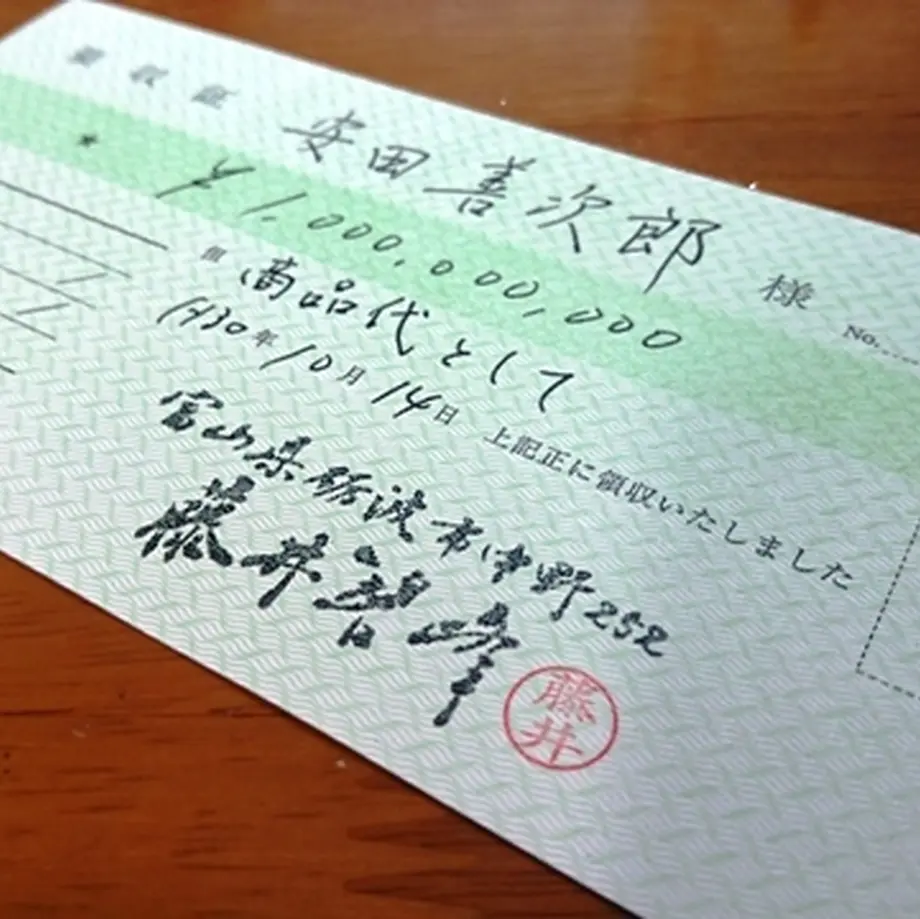 領収証 安田善次郎 様
No.
★ ¥1,000,000,000
但 商品代として
1930年10月14日 上記正に領収いたしました
富山県砺波市中野252
藤井智峰
藤井